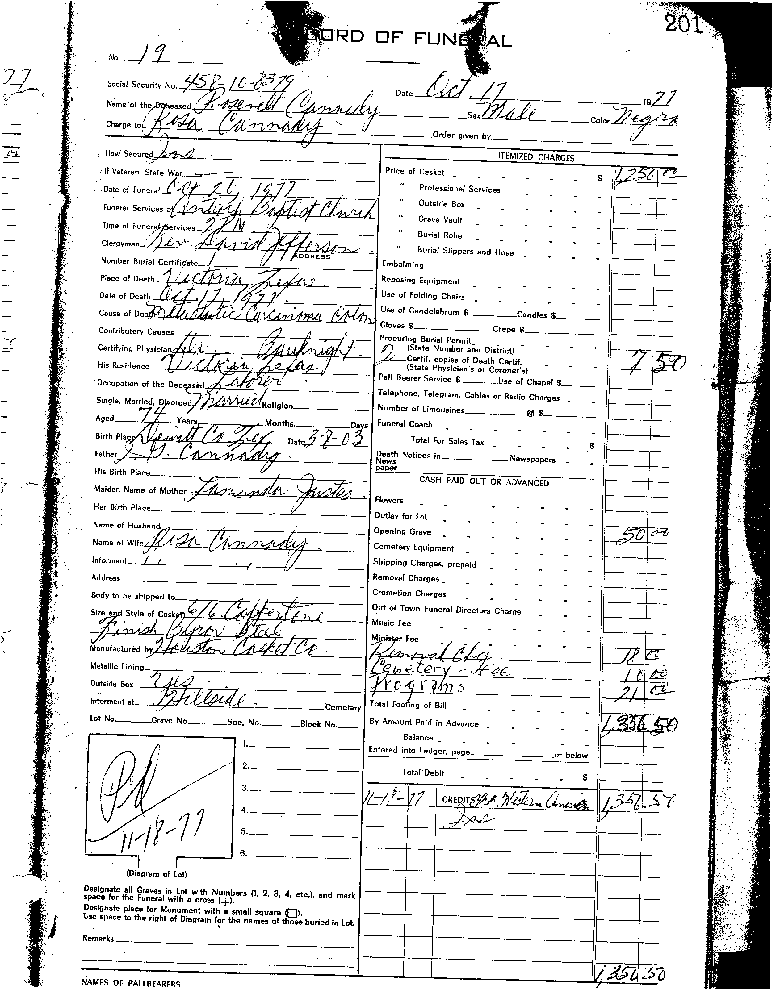 201
RECORD OF FUNERAL
No. 19
Social Security No. 458-10-8379 Date Oct 17 1977
Name of the Deceased Roosevelt Cannady Sex Male Color Negro
Charge to Rosa Cannady Order given by
How Secured Ins
If Veteran State War
Date of Funeral Oct 20, 1977
Funeral Services at Antioch Baptist Church
Time of Funeral Services 2 PM
Clergyman Rev David Jefferson
ADDRESS
Number Burial Certificate
Place of Death Victoria, Texas
Date of Death Oct 17, 1977
Cause of Death Metastatic Carcinoma Colon
Contributory Causes
Certifying Physician Dr Bauknight
His Residence Victoria Texas
Occupation of the Deceased Laborer
Single, Married, Divorced Married Religion
Aged 74 Years Months Days
Birth Place Dewitt Co Tex Date 3-8-03
Father Cannady
His Birth Place
Maiden Name of Mother
Her Birth Place
Name of Husband
Name of Wife Rosa Cannady
Informant " "
Address
Body to be shipped to
Size and Style of Casket 6/6 Coppertone
Finish Steel
Manufactured by Houston Casket Co
Metallic Lining
Outside Box yes
Interment at Hillside Cemetery
Lot No. Grave No. Sec. No. Block No.
Pd
11-18-77
1.
2.
3.
4.
5.
6.
(Diagram of Lot)
Designate all Graves in Lot with Numbers (1, 2, 3, 4, etc.), and mark
space for the Funeral with a cross (+).
Designate place for Monument with a small square (□).
Use space to the right of Diagram for the names of those buried in Lot.
Remarks
NAMES OF PALLBEARERS
ITEMIZED CHARGES
Price of Casket $ 1,250 00
" Professional Services
" Outside Box
" Grave Vault
" Burial Robe
" Burial Slippers and Hose
Embalming
Reposing Equipment
Use of Folding Chairs
Use of Candelabrum $ Candles $
Gloves $ Crepe $
Procuring Burial Permit
(State Number and District)
2 Certif. copies of Death Certif. 7 50
(State Physician's or Coroner's)
Pall Bearer Service $ Use of Chapel $
Telephone, Telegram, Cables or Radio Charges
Number of Limousines @ $
Funeral Coach
Total For Sales Tax $
Death Notices in Newspapers
News
paper
CASH PAID OUT OR ADVANCED
Flowers
Outlay for Lot
Opening Grave 50 00
Cemetery Equipment
Shipping Charges, prepaid
Removal Charges
Cremation Charges
Out of Town Funeral Directors Charge
Music Fee
Minister Fee
Removal Chg 18 00
Cemetery 10 00
Programs 21 00
Total Footing of Bill
By Amount Paid in Advance 1,356 50
Balance
Entered into Ledger, page or below
Total Debit $
11-18-77 CREDITS Western American 1,356.50
Ins
1,356.50